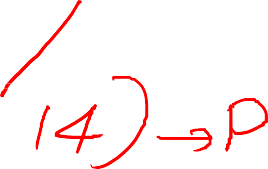 /14) → P